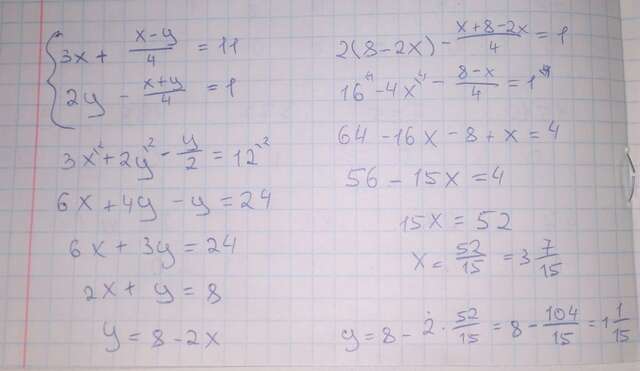 { 3x + (x-y)/4 = 11
2y - (x+y)/4 = 1
3x^·2 + 2y^·2 - y/2 = 12^·2
6x + 4y - y = 24
6x + 3y = 24
2x + y = 8
y = 8 - 2x
2(8-2x) - (x+8-2x)/4 = 1
16^·4 - 4x^·4 - (8-x)/4 = 1^·4
64 - 16x - 8 + x = 4
56 - 15x = 4
15x = 52
x = 52/15 = 3 7/15
y = 8 - 2 · 52/15 = 8 - 104/15 = 1 1/15